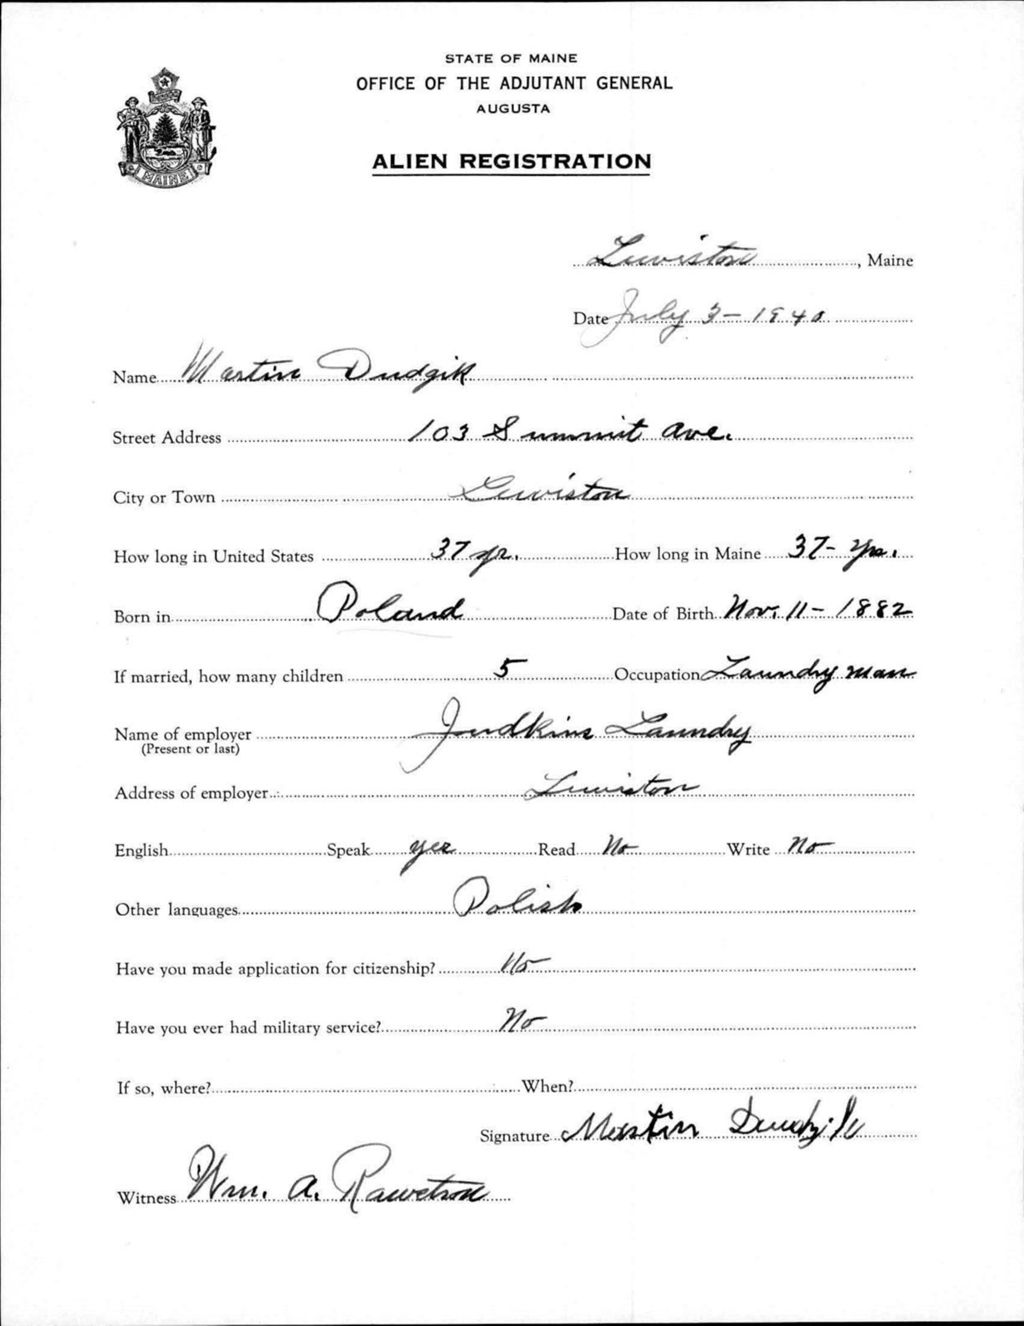 STATE OF MAINE
OFFICE OF THE ADJUTANT GENERAL
AUGUSTA
MAINE
ALIEN REGISTRATION
Lewiston, Maine
Date July 3-1940
Name Martin Dudzik
Street Address 103 Summit Ave.
City or Town Lewiston
How long in United States 37 yr. How long in Maine 37- yrs.
Born in Poland Date of Birth Nov. 11-1882
If married, how many children 5 Occupation Laundry man
Name of employer Judkins Laundry
(Present or last)
Address of employer Lewiston
English Speak yes Read No Write No
Other languages Polish
Have you made application for citizenship? No
Have you ever had military service? No
If so, where? When?
Signature Martin
Witness Wm. A.